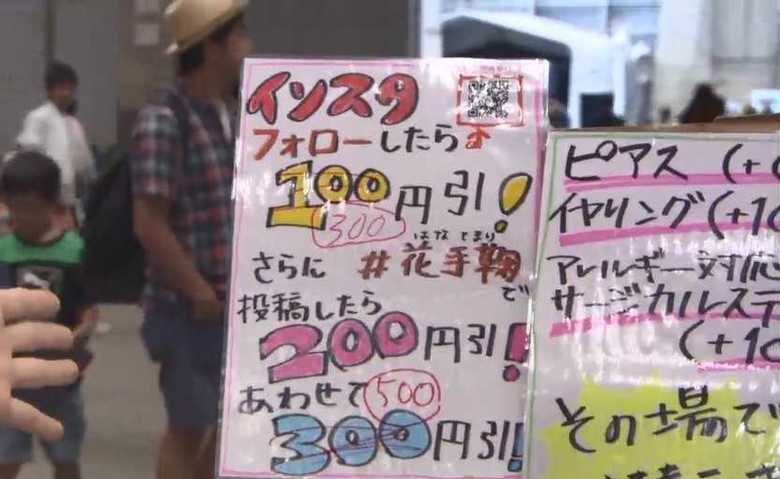 インスタ
フォローしたら
100円引!
300
はなてまり
さらに #花手鞠で
投稿したら
200円引!
あわせて 500
300円引!
ピアス (+
イヤリング (+10
アレルギー対応
サージカルステ
(+10
その場で